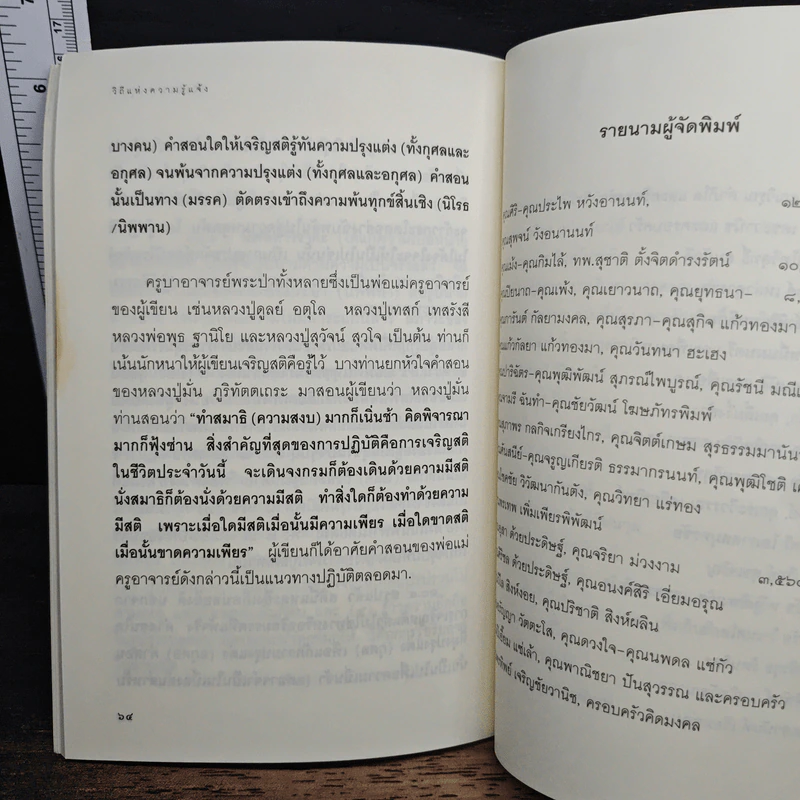 วิถีแห่งความรู้แจ้ง
บางคน) คำสอนใดให้เจริญสติรู้ทันความปรุงแต่ง (ทั้งกุศลและ
อกุศล) จนพ้นจากความปรุงแต่ง (ทั้งกุศลและอกุศล) คำสอน
นั้นเป็นทาง (มรรค) ตัดตรงเข้าถึงความพ้นทุกข์สิ้นเชิง (นิโรธ
/นิพพาน)
ครูบาอาจารย์พระป่าทั้งหลายซึ่งเป็นพ่อแม่ครูอาจารย์
ของผู้เขียน เช่นหลวงปู่ดูลย์ อตุโล หลวงปู่เทสก์ เทสรังสี
หลวงพ่อพุธ ฐานิโย และหลวงปู่สุวัจน์ สุวโจ เป็นต้น ท่านก็
เน้นนักหนาให้ผู้เขียนเจริญสติคือรู้ไว้ บางท่านยกหัวใจคำสอน
ของหลวงปู่มั่น ภูริทัตตเถระ มาสอนผู้เขียนว่า หลวงปู่มั่น
ท่านสอนว่า "ทำสมาธิ (ความสงบ) มากก็เนิ่นช้า คิดพิจารณา
มากก็ฟุ้งซ่าน สิ่งสำคัญที่สุดของการปฏิบัติคือการเจริญสติ
ในชีวิตประจำวันนี้ จะเดินจงกรมก็ต้องเดินด้วยความมีสติ
นั่งสมาธิก็ต้องนั่งด้วยความมีสติ ทำสิ่งใดก็ต้องทำด้วยความ
มีสติ เพราะเมื่อใดมีสติเมื่อนั้นมีความเพียร เมื่อใดขาดสติ
เมื่อนั้นขาดความเพียร" ผู้เขียนก็ได้อาศัยคำสอนของพ่อแม่
ครูอาจารย์ดังกล่าวนี้เป็นแนวทางปฏิบัติตลอดมา.
๖๔
รายนามผู้จัดพิมพ์
คุณศิริ-คุณประไพ หวังอานนท์, ๑๒
คุณสุพจน์ วังอนานนท์
คุณเม้ง-คุณกิมไล้, ทพ.สุชาติ ตั้งจิตดำรงรัตน์ ๑๐
คุณปิยนาถ-คุณเพ้ง, คุณเยาวนาถ, คุณยุทธนา- ๘,
คุณการันต์ กัลยามงคล, คุณสุรภา-คุณสุกิจ แก้วทองมา
คุณแก้วกัลยา แก้วทองมา, คุณวันทนา ฮะเฮง
คุณปาริฉัตร-คุณพุฒิพัฒน์ สุภรณ์ไพบูรณ์, คุณรัชนี
ฉันทำ-คุณชัยวัฒน์ โฆษภัทรพิมพ์
กลกิจเกรียงไกร, คุณจิตต์เกษม สุรธรรมมานันท์
คุณจรูญเกียรติ ธรรมากรนนท์, คุณพุฒิโชติ
วิวัฒนากันตัง, คุณวิทยา แร่ทอง
เพิ่มเพียรพิพัฒน์
ด้วยประดิษฐ์, คุณจริยา ม่วงงาม ๓,๕๖๐
ด้วยประดิษฐ์, คุณอนงค์สิริ เอี่ยมอรุณ
สิงห์งอย, คุณปริชาติ สิงห์ผลิน
วัตตะโส, คุณดวงใจ-คุณนพดล แซ่กัว
แซ่เล้า, คุณพาณิชยา ปันสุวรรณ และครอบครัว
เจริญชัยวานิช, ครอบครัวคิดมงคล